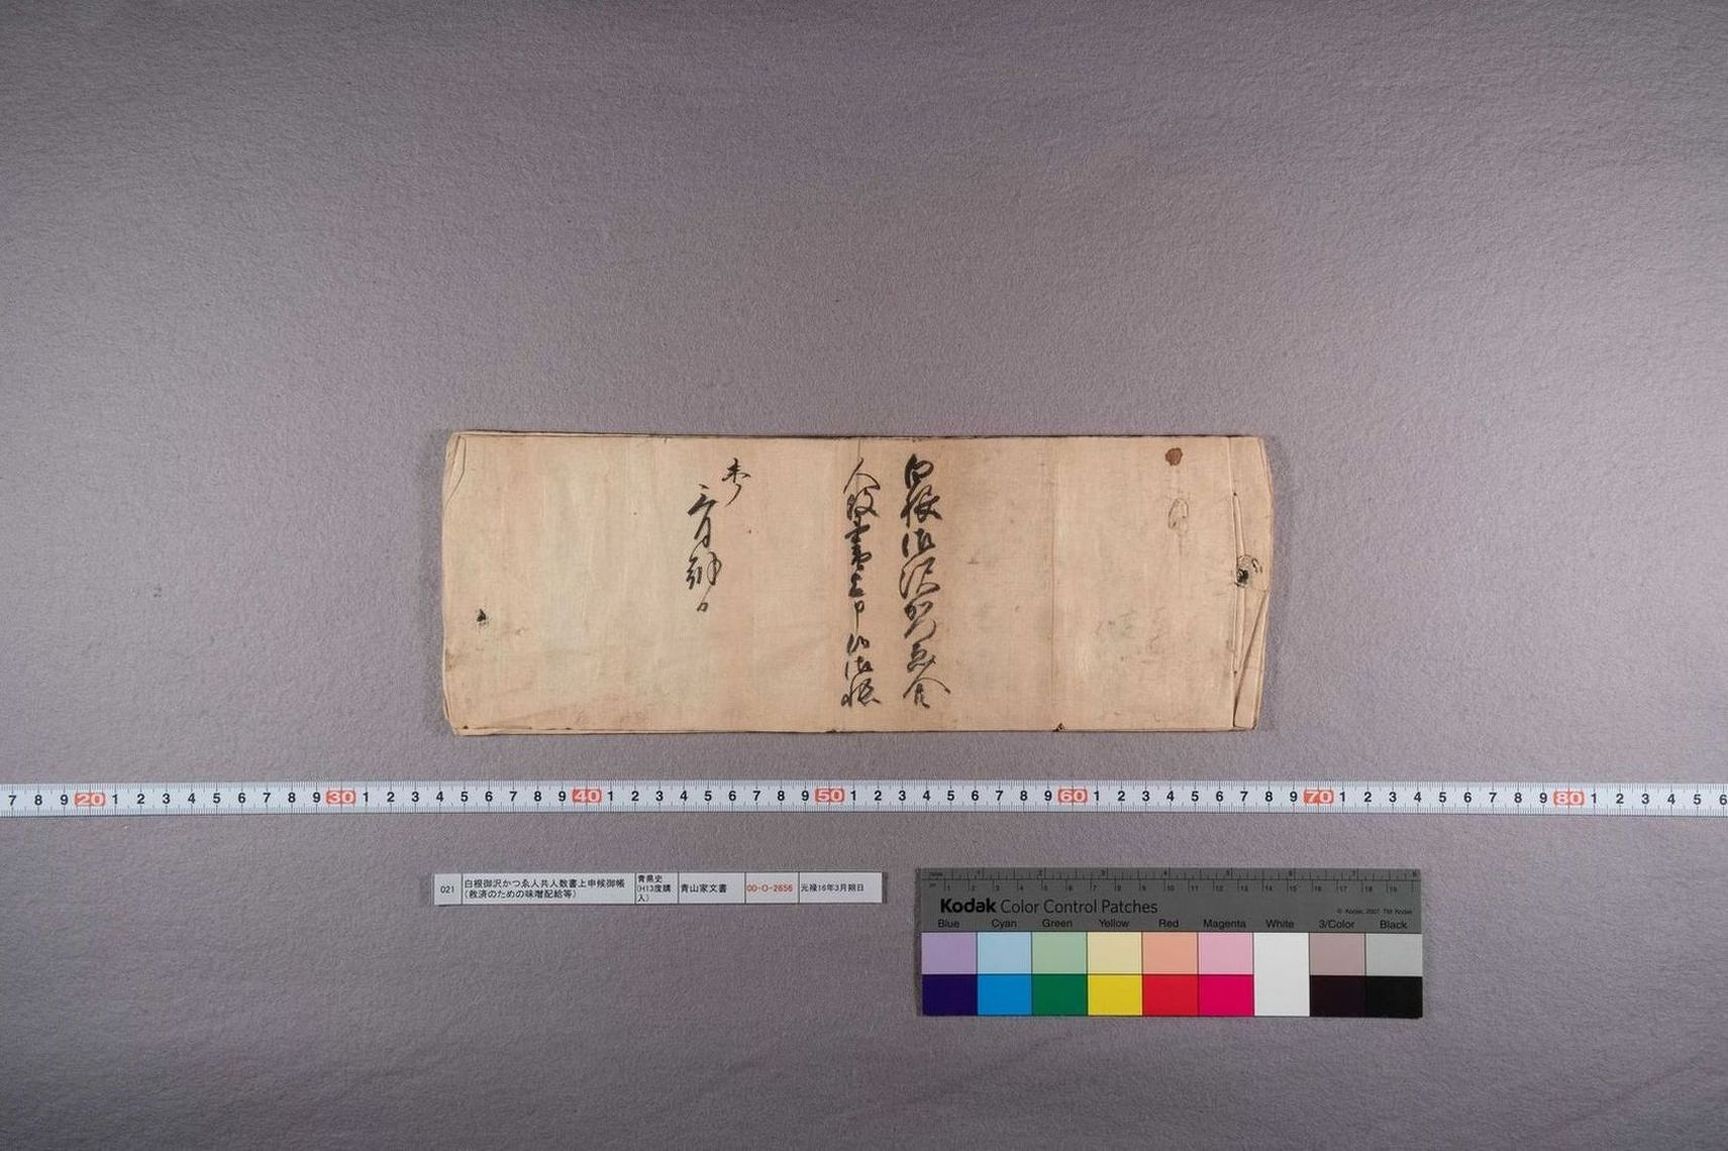 白根御沢かつゑ人
人数書上申候御帳
未ノ
三月朔日
7 8 9 20 1 2 3 4 5 6 7 8 9 30 1 2 3 4 5 6 7 8 9 40 1 2 3 4 5 6 7 8 9 50 1 2 3 4 5 6 7 8 9 60 1 2 3 4 5 6 7 8 9 70 1 2 3 4 5 6 7 8 9 80 1 2 3 4 5 6
021
白根御沢かつゑ人共人数書上申候御帳
(救済のための味噌配給等)
青県史
(H13度購
入)
青山家文書
00-O-2656
元禄16年3月朔日
Kodak Color Control Patches
© Kodak, 2007 TM: Kodak
Blue Cyan Green Yellow Red Magenta White 3/Color Black